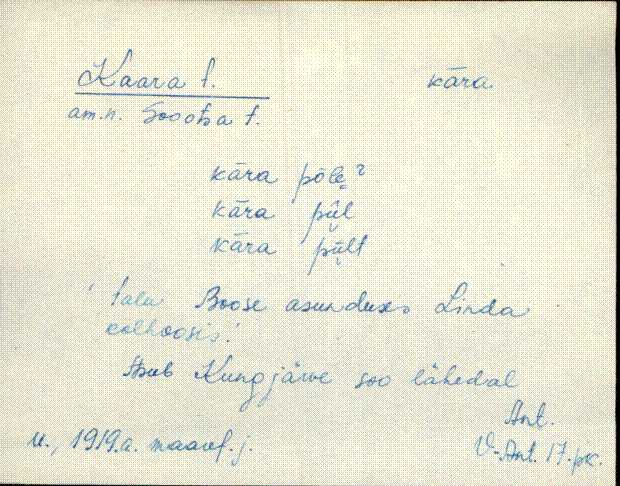 Kaara t. kāra
am.n. Soootsa t.
kāra põlę?
kāra pi̬i̭l
kāra pi̬i̭lt
'talu Boose asunduses Linda
kolhoosis'.
Asub Kungjärve soo lähedal
Ant.
u., 1919.a. maaref.j. V-Ant. 17. pk.